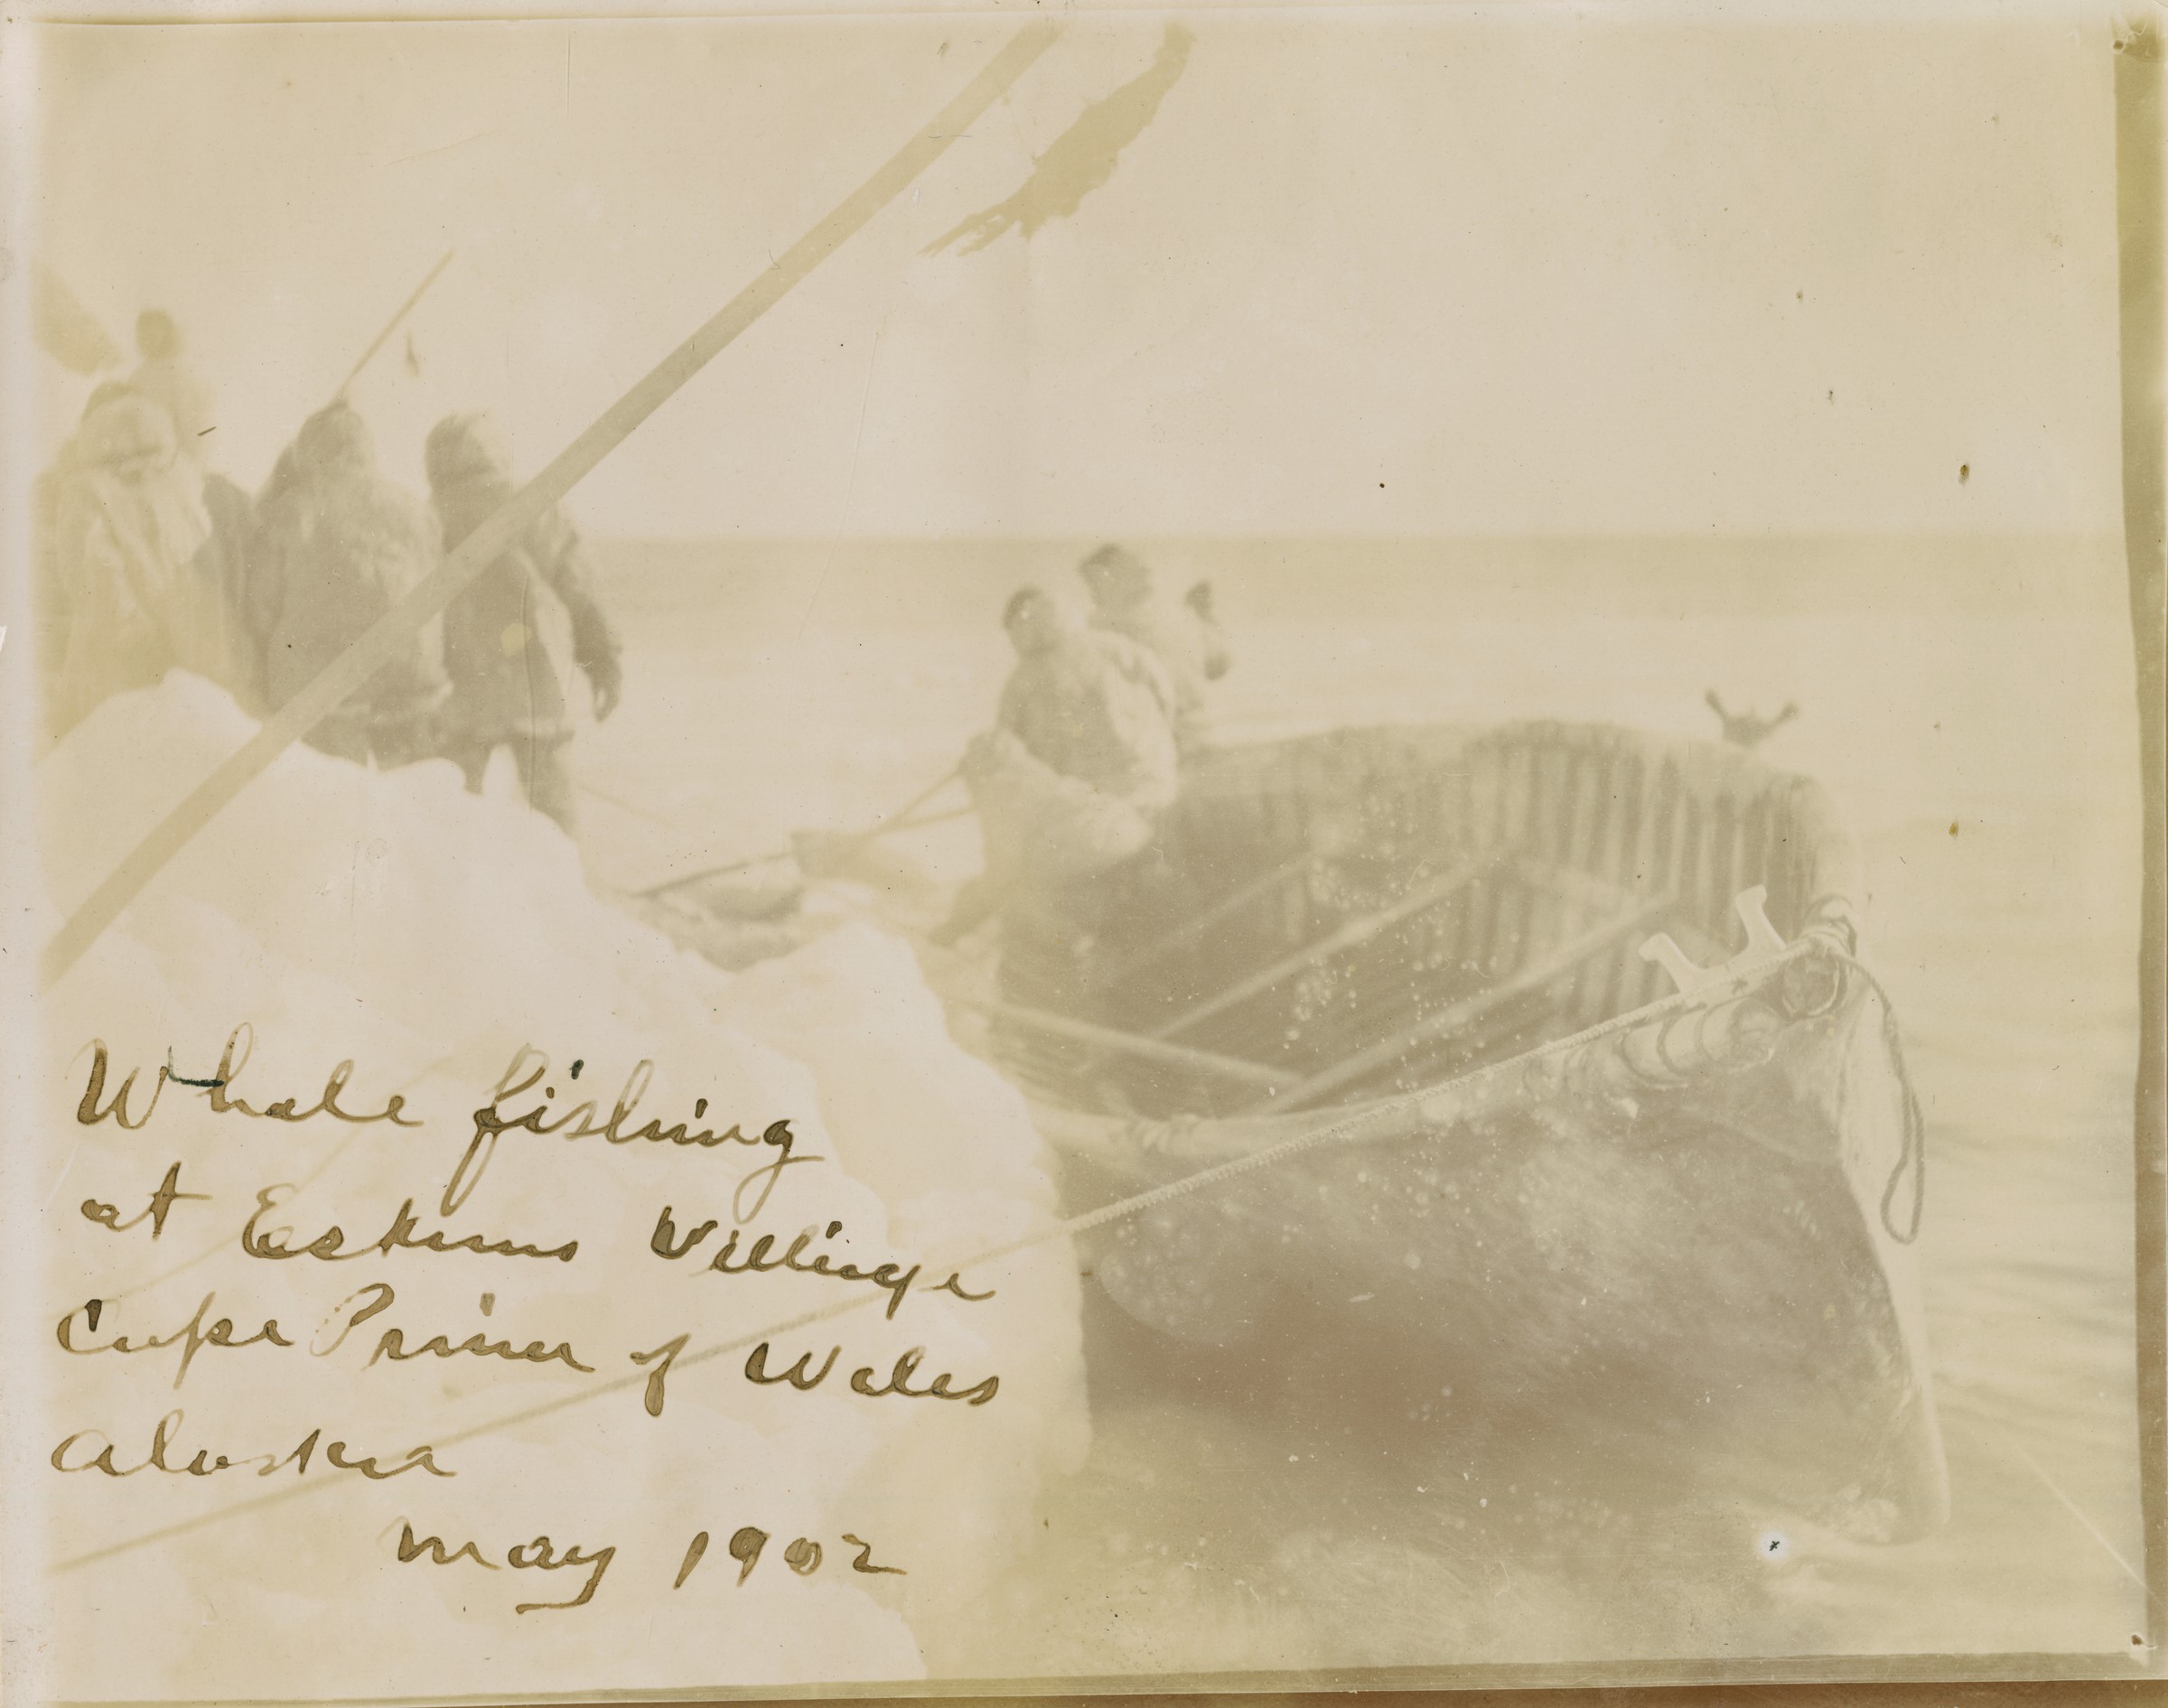 Whale fishing
at Eskimo Village
Cape Prince of Wales
Alaska
May 1902